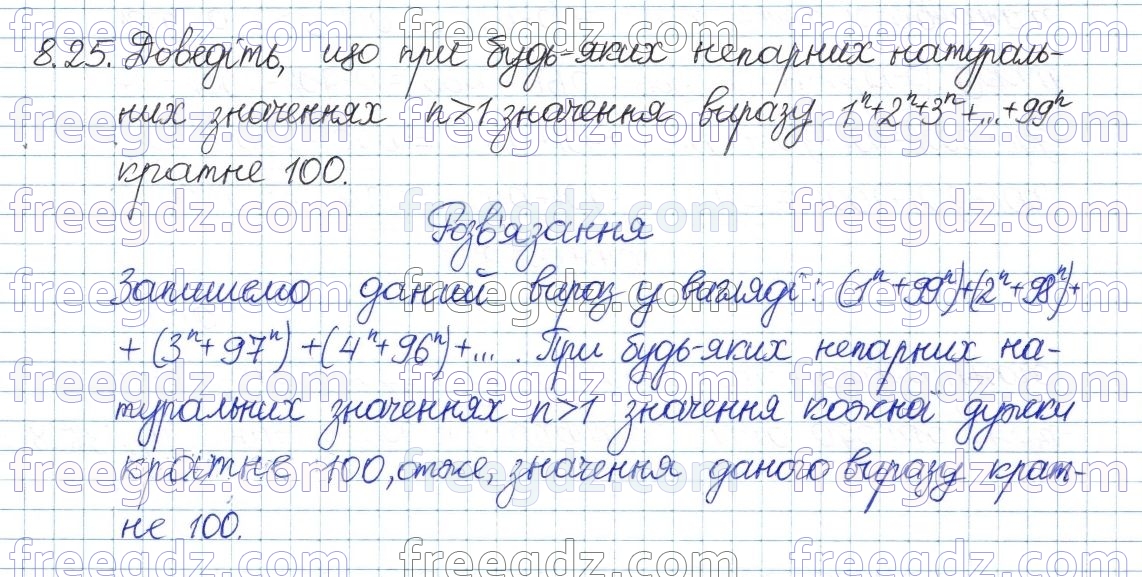 8.25. Доведіть, що при будь-яких непарних натураль-
них значеннях n>1 значення виразу 1ⁿ+2ⁿ+3ⁿ+...+99ⁿ
кратне 100.
Розв'язання
Запишемо даний вираз у вигляді: (1ⁿ+99ⁿ)+(2ⁿ+98ⁿ)+
+(3ⁿ+97ⁿ)+(4ⁿ+96ⁿ)+... . При будь-яких непарних на-
туральних значеннях n>1 значення кожної дужки
кратне 100, отже, значення даного виразу крат-
не 100.
freegdz.com